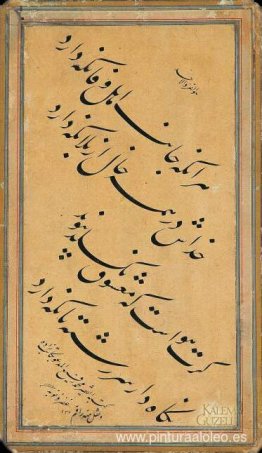 هر آنکه جانب اهل وفا نگه دارد
خداش در همه حال از بلا نگه دارد
گرت هواست که معشوق نگسلد پیوند
نگاه دار سر رشته تا نگه دارد
KALEM
GUZELI
www.pinturaaloleo.es